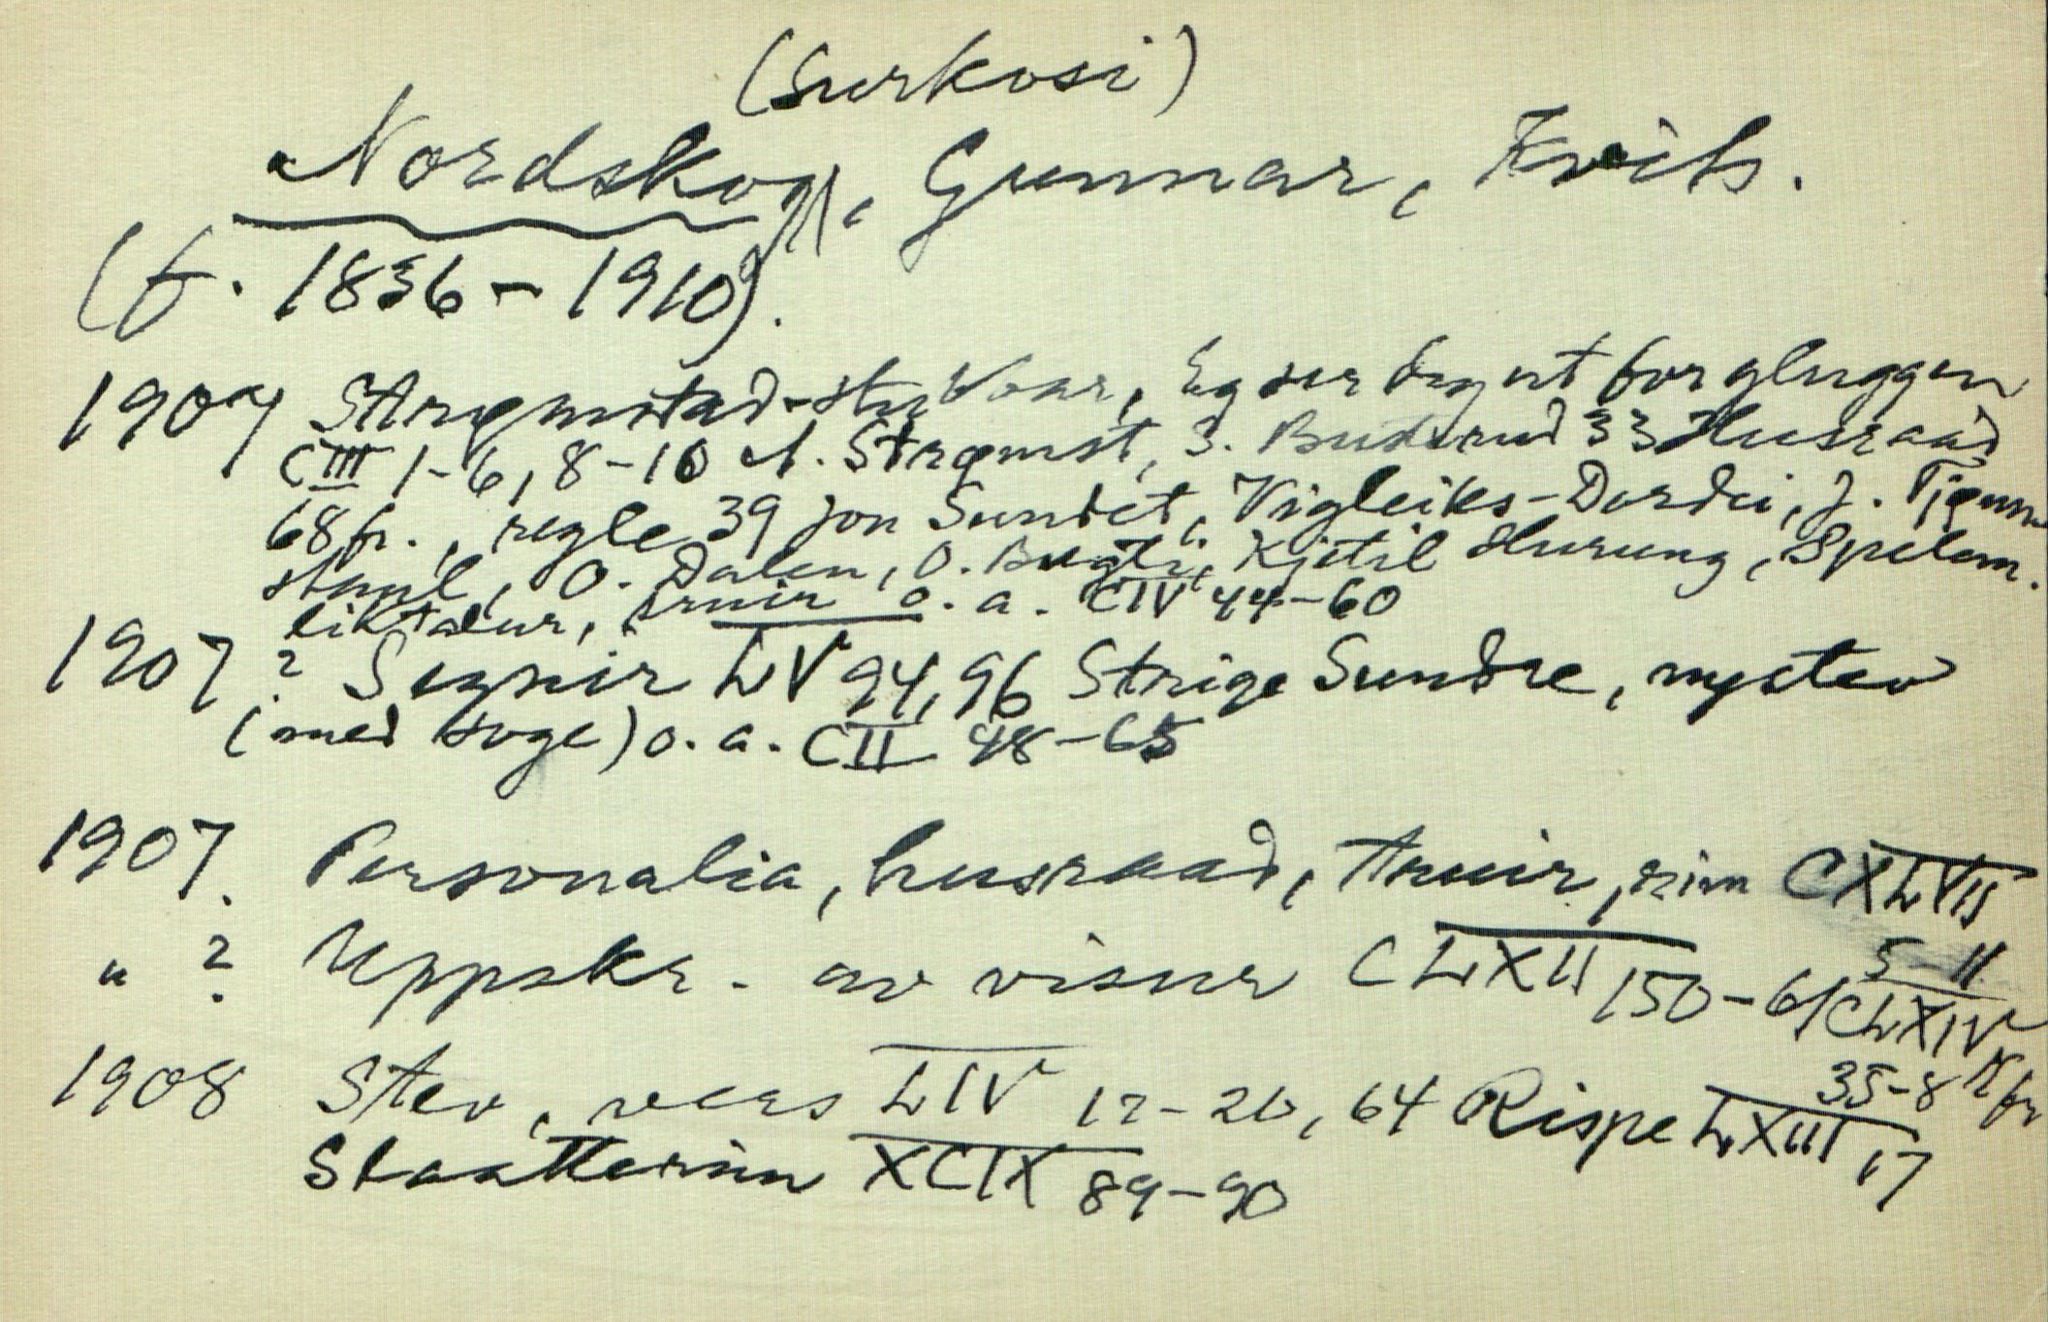 (Surkosi)
Nordskog, Gunnar, Kvits.
(f. 1836-1910).
1907 Strømstad-stu Eg ser deg ut for gluggen
CIII 1-6, 8-10 N. Strømst, S. Buderud 33 Husraad
68 fr., regle 39 Jon Sundet, Vigleiks-Dordei, J. Tjønn-
staul, O. Dalen, O. Kjetil Hurung, Spelem.
liktalur, truir o. a. CIV 44-60
1907 ? Segnir LV 94, 96 Strige Sundre, nystev
(med soge) o. a. CII 48-65
1907. Personalia, husraad, truir, rim CXLVII
5-11
" ? Uppskr. av visur CLXII 150-61 CLXIV
35-8
1908 Stev, vers LIV 12-20, 64 Rispe LXIII 17
Slaatterim XCIX 89-90